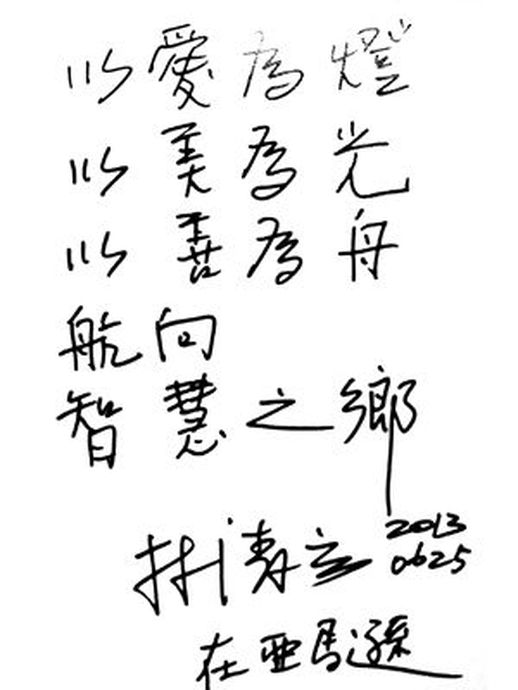 以愛為燈
以美為光
以善為舟
航向
智慧之鄉
林清玄 2013
0625
在亞馬遜